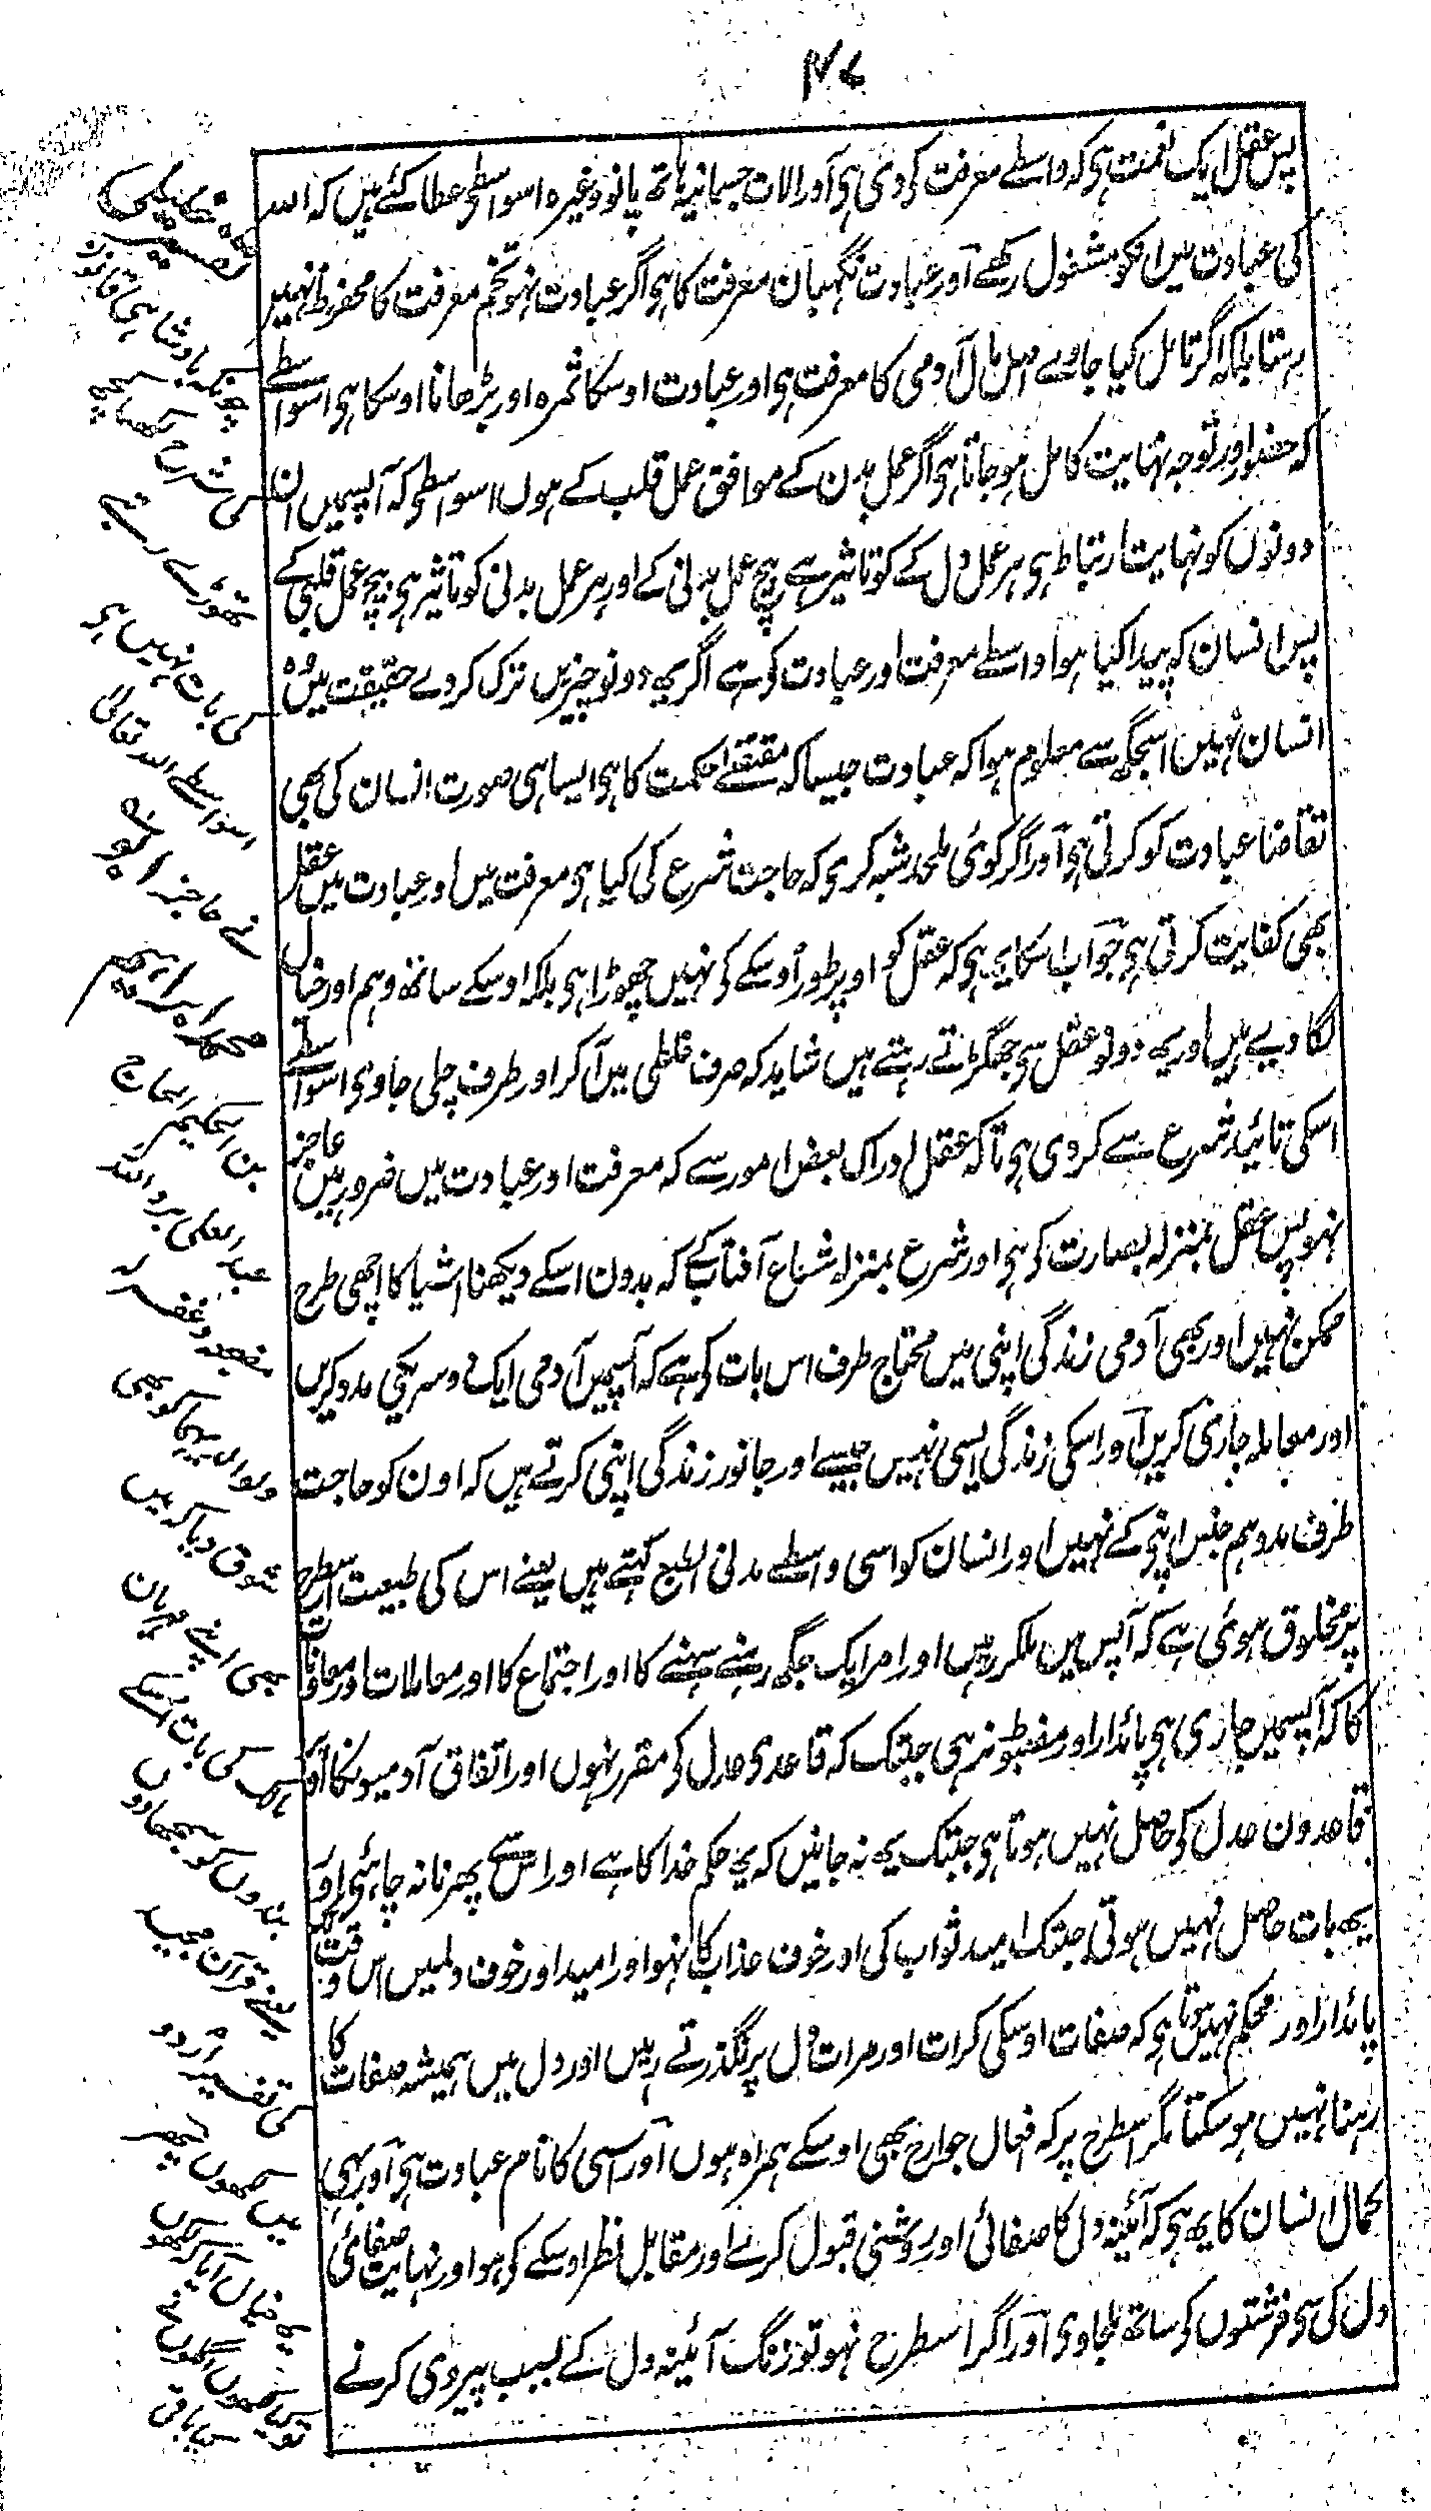 ۴۷
پس عقل ایک نعمت ہی کہ واسطے معرفت کی دی ہی آور الات جسمانیہ ہاتھ پانو وغیرہ اسواسطی عطا کئے ہیں کہ اللہ
کی عبادت میں انکو مشغول رکھے آور عبادت نگہبان معرفت کا ہی اگر عبادت نہو تخم معرفت کا محفوظ نہیں
رہتا بلکہ اگر تامل کیا جاوے اصل مال آدمی کا معرفت ہی اور عبادت اوسکا ثمرہ اور بڑھانا اوسکا ہی اسواسطے
کہ حضور اور توجہ نہایت کامل ہو جاتا ہی اگر عمل بدن کے موافق عمل قلب کے ہوں اسواسطی کہ آپسمیں ان
دونوں کو نہایت ارتباط ہی ہر عمل دل کے کو تاثیر ہے بیچ عمل بدنی کے اور ہر عمل بدنی کو تاثیر ہی بیچ عمل قلبی کے
پس انسان کہ پیدا کیا ہوا واسطے معرفت اور عبادت کو ہے اگر یہ دونو چیزیں ترک کر دے حقیقت میں وہ
انسان نہیں اسجگہ سے معلوم ہوا کہ عبادت جیسا کہ مقتضے احکمت کا ہی ایسا ہی صورت انسان کی بھی
تقاضا عبادت کو کرتی ہی آور اگر کوئی ملحد شبہ کری کہ حاجت شرع کی کیا ہی معرفت میں اور عبادت میں عقل
بھی کفایت کرتی ہی جواب اسکا یہ ہی کہ عقل کو اوپر طور اوسکے کو نہیں چھوڑا ہی بلکہ اوسکے ساتھ وہم اور خیال
لگا دیے ہیں اور یہ دونو عقل سی جھگڑتے رہتے ہیں شاید کہ صرف غلطی میں آکر اور طرف چلی جاوی اسواسطے
اسکی تائید شرع سے کر دی ہی تاکہ عقل ادراک بعض امور سے کہ معرفت اور عبادت میں ضرور ہیں عاجز
نہو پس عقل بمنزلہ بصارت کو ہی اور شرع بمنزلہ شعاع آفتاب کے کہ بدون اسکے دیکھنا اشیا کا اچھی طرح
ممکن نہیں اور بھی آدمی زندگی اپنی میں محتاج طرف اس بات کو ہے کہ آپسمیں آدمی ایک دوسریکی مدد کریں
اور معاملہ جاری کریں آور اسکی زندگی ایسی نہیں جیسے اور جانور زندگی اپنی کرتے ہیں کہ اون کو حاجت
طرف مدد ہم جنس اپنی کے نہیں اور انسان کو اسی واسطے مدنی الطبع کہتے ہیں یعنے اس کی طبیعت اسطرح
پر مخلوق ہوئی ہے کہ آپس میں ملکر رہیں اور امر ایک جگہ رہنے سہنے کا اور اجتماع کا اور معاملات اور معاوضات
کا کہ آپسمیں جاری ہی پائدار اور مضبوط نہ رہی جبتک کہ قاعدی عدل کو مقرر نہوں اور اتفاق آدمیونکا اوپر
قاعدون عدل کو حاصل نہیں ہوتا ہی جبتک یہ نہ جانیں کہ یہ حکم خدا کا ہے اور اس سے پھرنا نہ چاہئی اور
یہ بات حاصل نہیں ہوتی جبتک امید ثواب کی اور خوف عذاب کا نہو اور امید اور خوف دلمیں اس وقت تک
پائدار اور محکم نہیں ہوتا ہی کہ صفات اوسکی کرات اور مرات دل پر نگذرتے رہیں اور دل میں ہمیشہ صفات کا
رہنا نہیں ہو سکتا مگر اسطرح پر کہ افعال جوارح بھی اوسکے ہمراہ ہوں آور اسی کا نام عبادت ہی آور بھی
کمال انسان کا یہ ہی کہ آئینہ دل کا صفائی اور روشنی قبول کرے اور مقابل نظر اوسکے کو ہو اور نہایت صفائی
دل کی سی فرشتوں کو ساتھ ملجاوی آور اگر اسطرح نہو تو زنگ آئینہ دل کے بسبب پیروی کرنے
چونکہ بادشاہی قانون
کی شرح کہنا کچھ
تھوڑے رستے
کی بات نہیں ہی
اسواسطے اللہ تعالی
نے عاجز ابو
محمد ابراہیم
بن الحکیم الحاج
عبد العلی برد اللہ
مضجعہ و غفر لہ
شوق دیا کہ میں
بھی اپنے مہربان
مالک کی بات اسکے
بندوں کو سمجھادوں
یعنے قرآن مجید
کی تفسیر اردو
میں لکھوں پھر
یہ خیال آیا کہ لکھوں